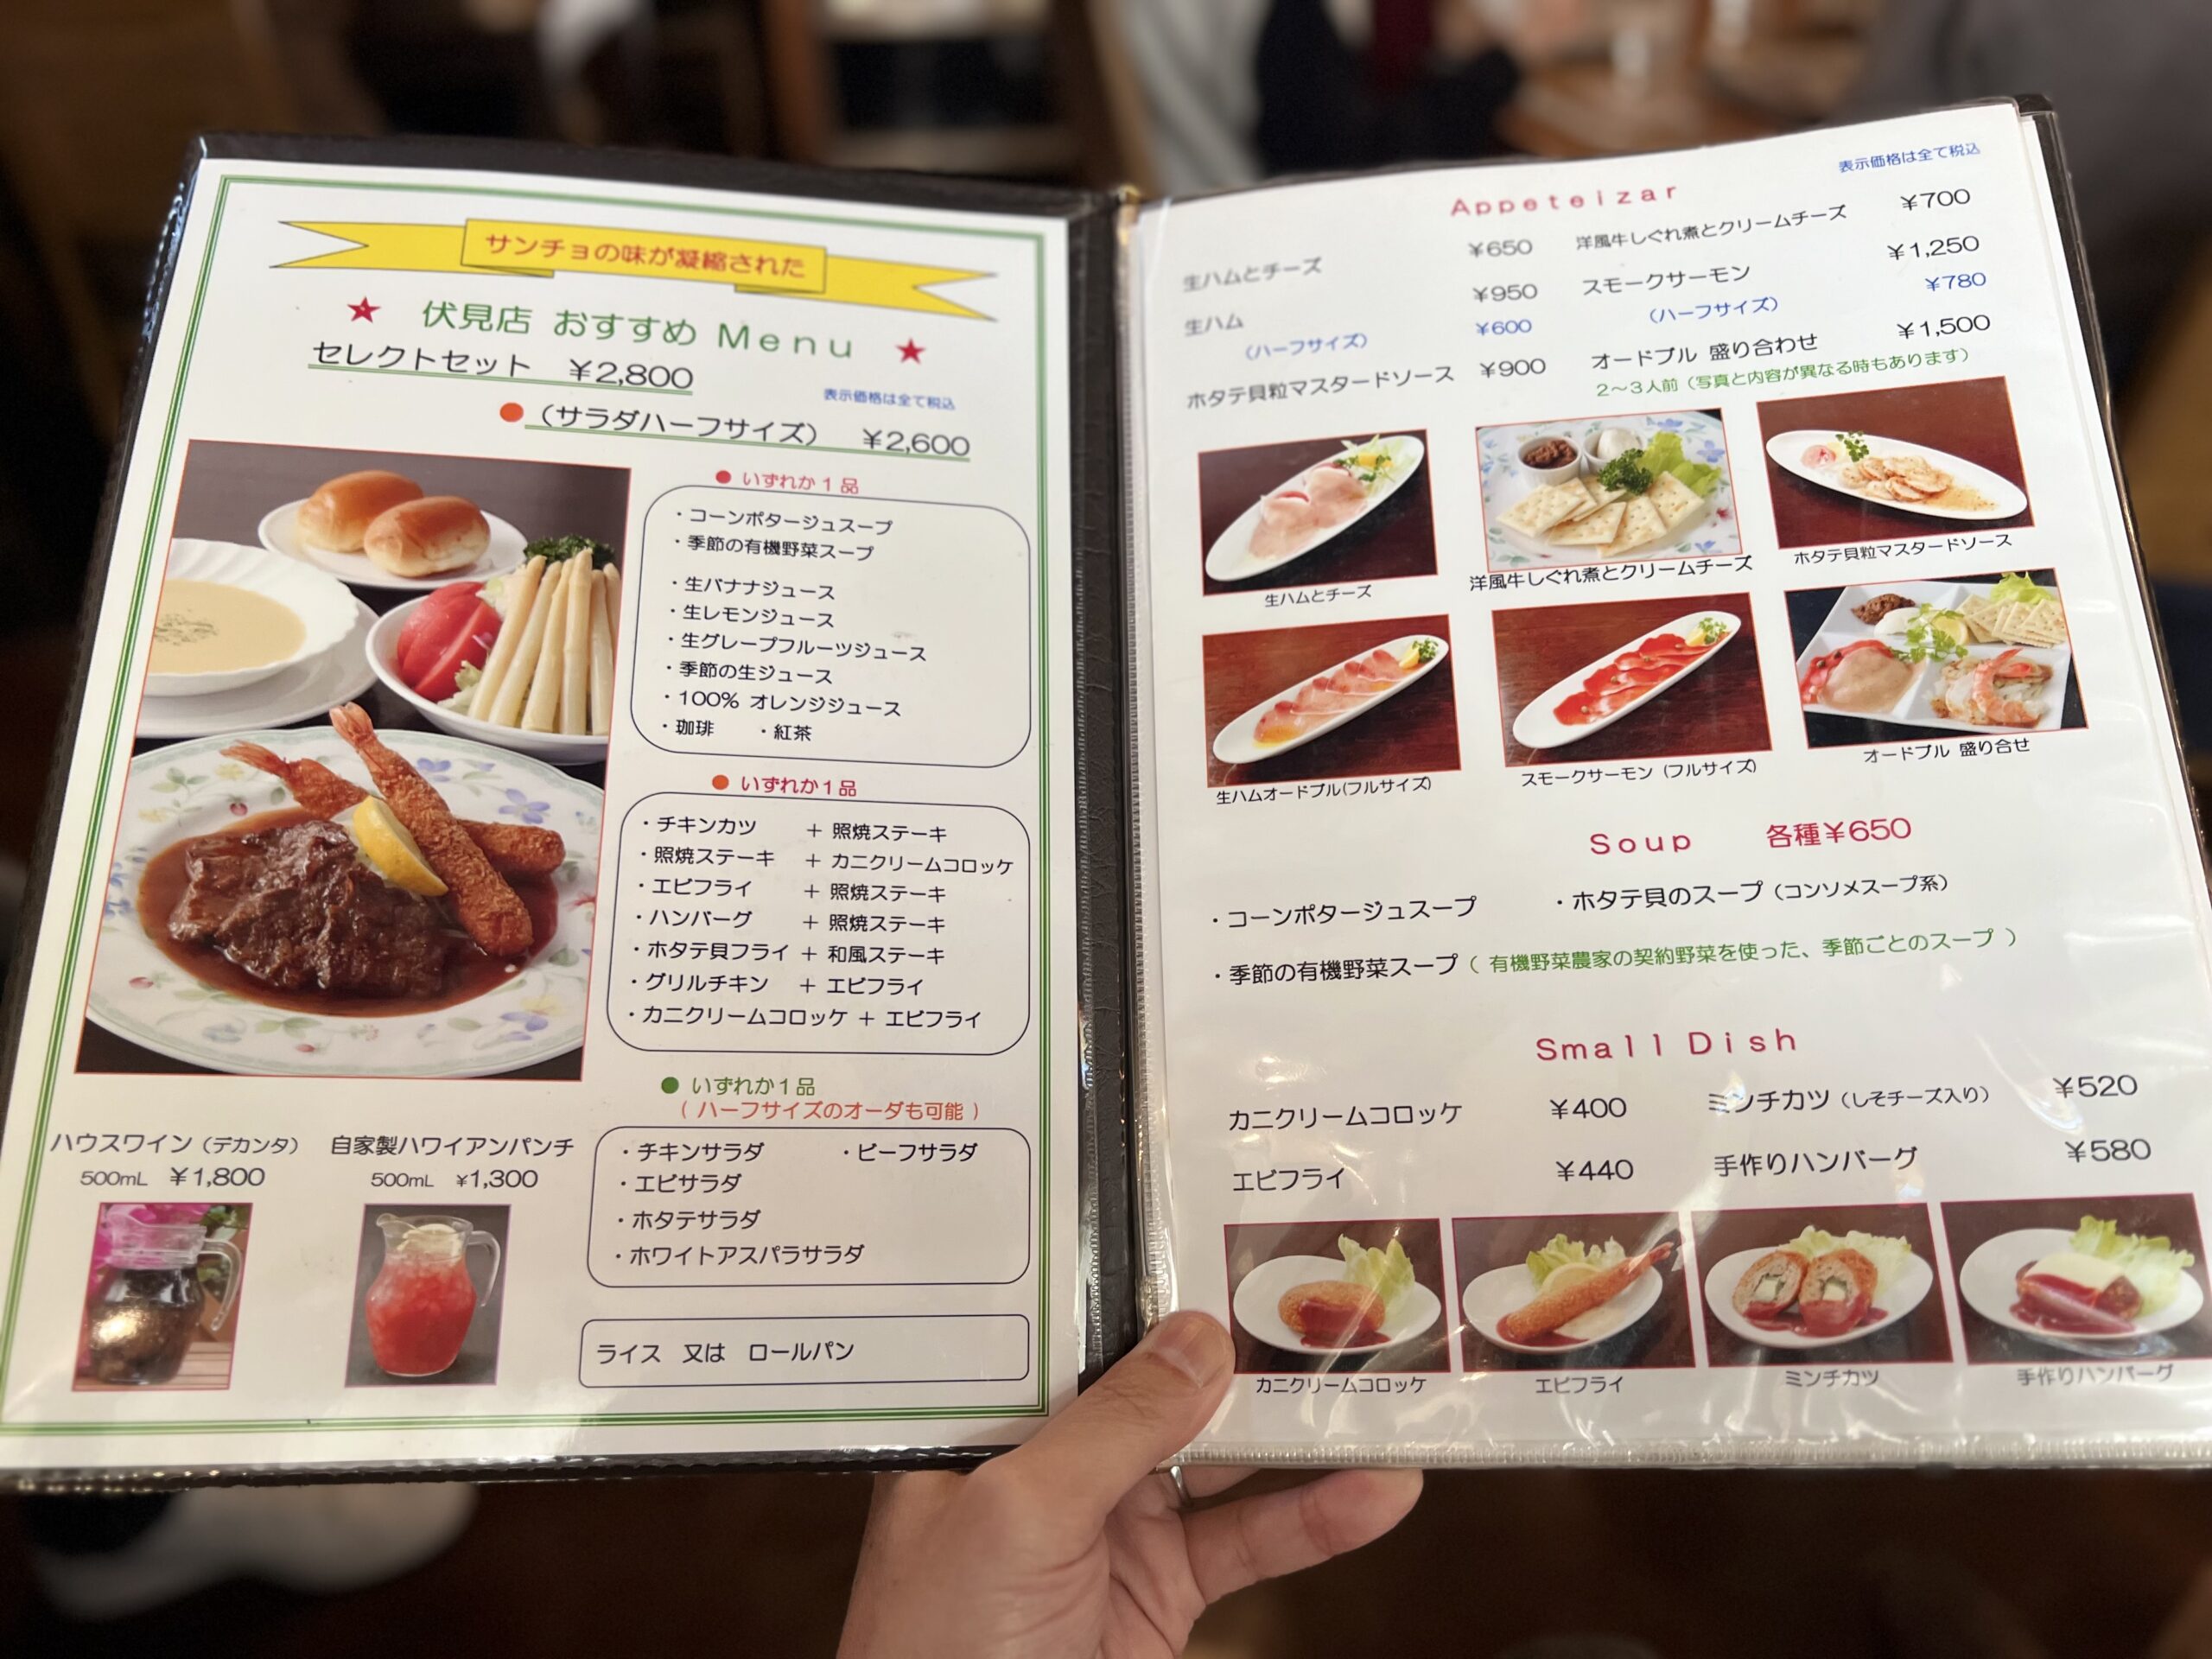 サンチョの味が凝縮された
★ 伏見店 おすすめ Menu ★
セレクトセット ¥2,800
表示価格は全て税込
●(サラダハーフサイズ) ¥2,600
● いずれか1品
・コーンポタージュスープ
・季節の有機野菜スープ
・生バナナジュース
・生レモンジュース
・生グレープフルーツジュース
・季節の生ジュース
・100% オレンジジュース
・珈琲 ・紅茶
● いずれか1品
・チキンカツ + 照焼ステーキ
・照焼ステーキ + カニクリームコロッケ
・エビフライ + 照焼ステーキ
・ハンバーグ + 照焼ステーキ
・ホタテ貝フライ + 和風ステーキ
・グリルチキン + エビフライ
・カニクリームコロッケ + エビフライ
● いずれか1品
( ハーフサイズのオーダも可能 )
・チキンサラダ ・ビーフサラダ
・エビサラダ
・ホタテサラダ
・ホワイトアスパラサラダ
ライス 又は ロールパン
ハウスワイン(デカンタ)
500mL ¥1,800
自家製ハワイアンパンチ
500mL ¥1,300
表示価格は全て税込
Appeteizar
生ハムとチーズ ¥650
生ハム ¥950
(ハーフサイズ) ¥600
ホタテ貝粒マスタードソース ¥900
洋風牛しぐれ煮とクリームチーズ ¥700
スモークサーモン ¥1,250
(ハーフサイズ) ¥780
オードブル 盛り合わせ ¥1,500
2〜3人前(写真と内容が異なる時もあります)
生ハムとチーズ
洋風牛しぐれ煮とクリームチーズ
ホタテ貝粒マスタードソース
生ハムオードブル(フルサイズ)
スモークサーモン (フルサイズ)
オードブル 盛り合せ
Soup 各種¥650
・コーンポタージュスープ ・ホタテ貝のスープ(コンソメスープ系)
・季節の有機野菜スープ( 有機野菜農家の契約野菜を使った、季節ごとのスープ )
Small Dish
カニクリームコロッケ ¥400 ミンチカツ(しそチーズ入り) ¥520
エビフライ ¥440 手作りハンバーグ ¥580
カニクリームコロッケ
エビフライ
ミンチカツ
手作りハンバーグ